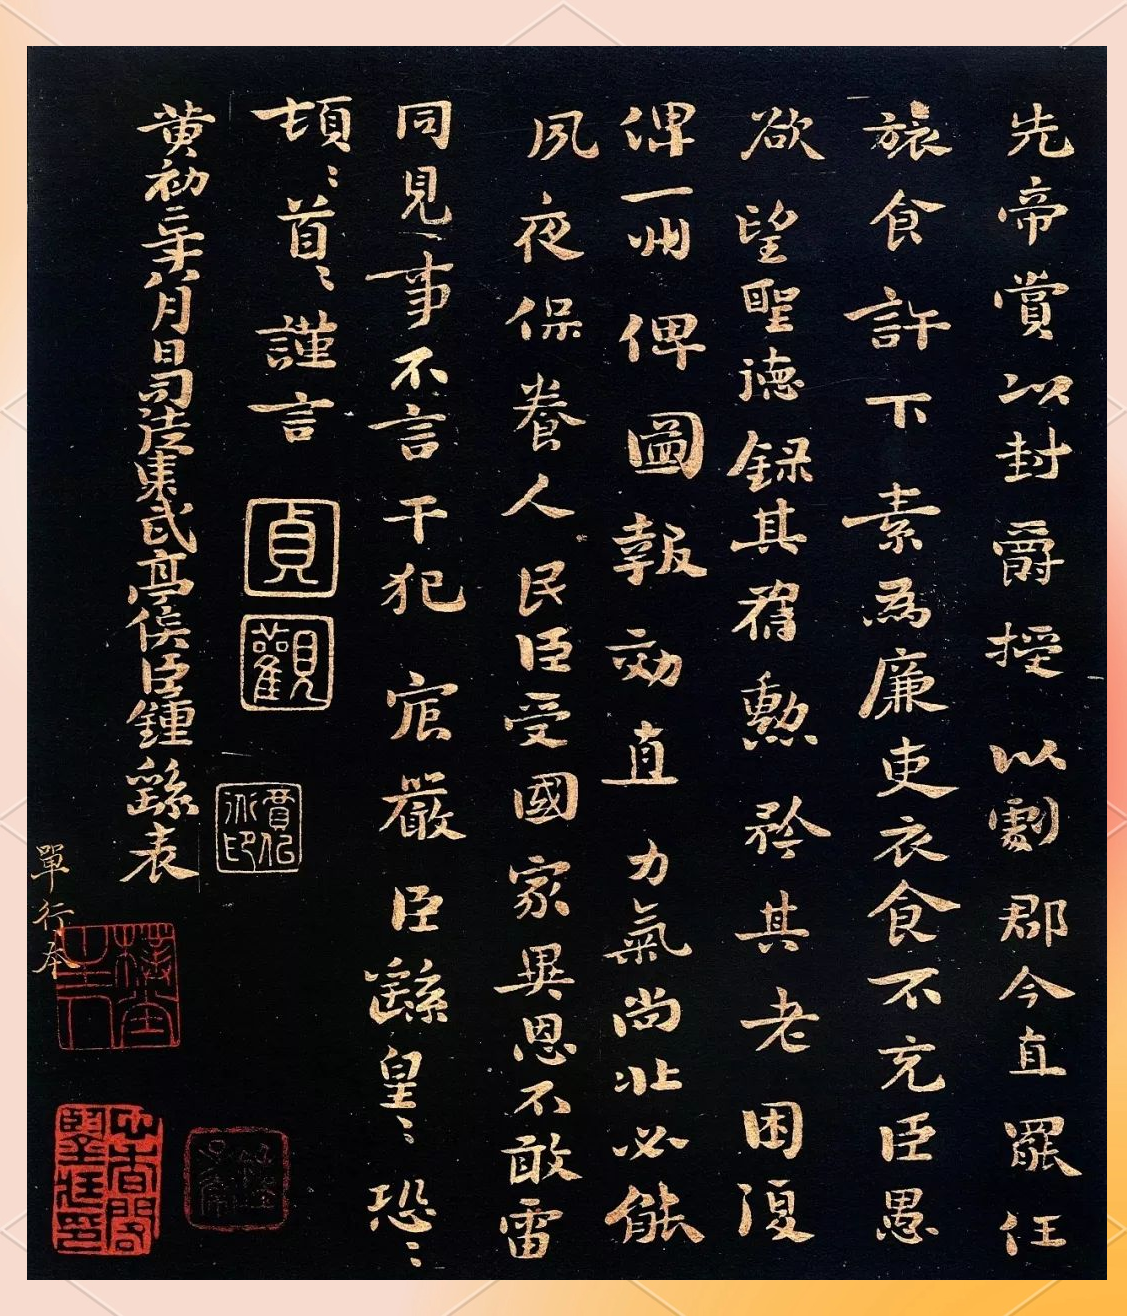 先帝賞以封爵授以劇郡今直罷任
旅食許下素為廉吏衣食不充臣愚
欲望聖德錄其舊勳矜其老困復
俾一州俾圖報効直力氣尚壮必能
夙夜保養人民臣受國家異恩不敢雷
同見事不言干犯宸嚴臣繇皇〻恐〻
頓〻首〻謹言
貞
觀
黄初二年八月日司徒東武亭侯臣鍾繇表
單行本